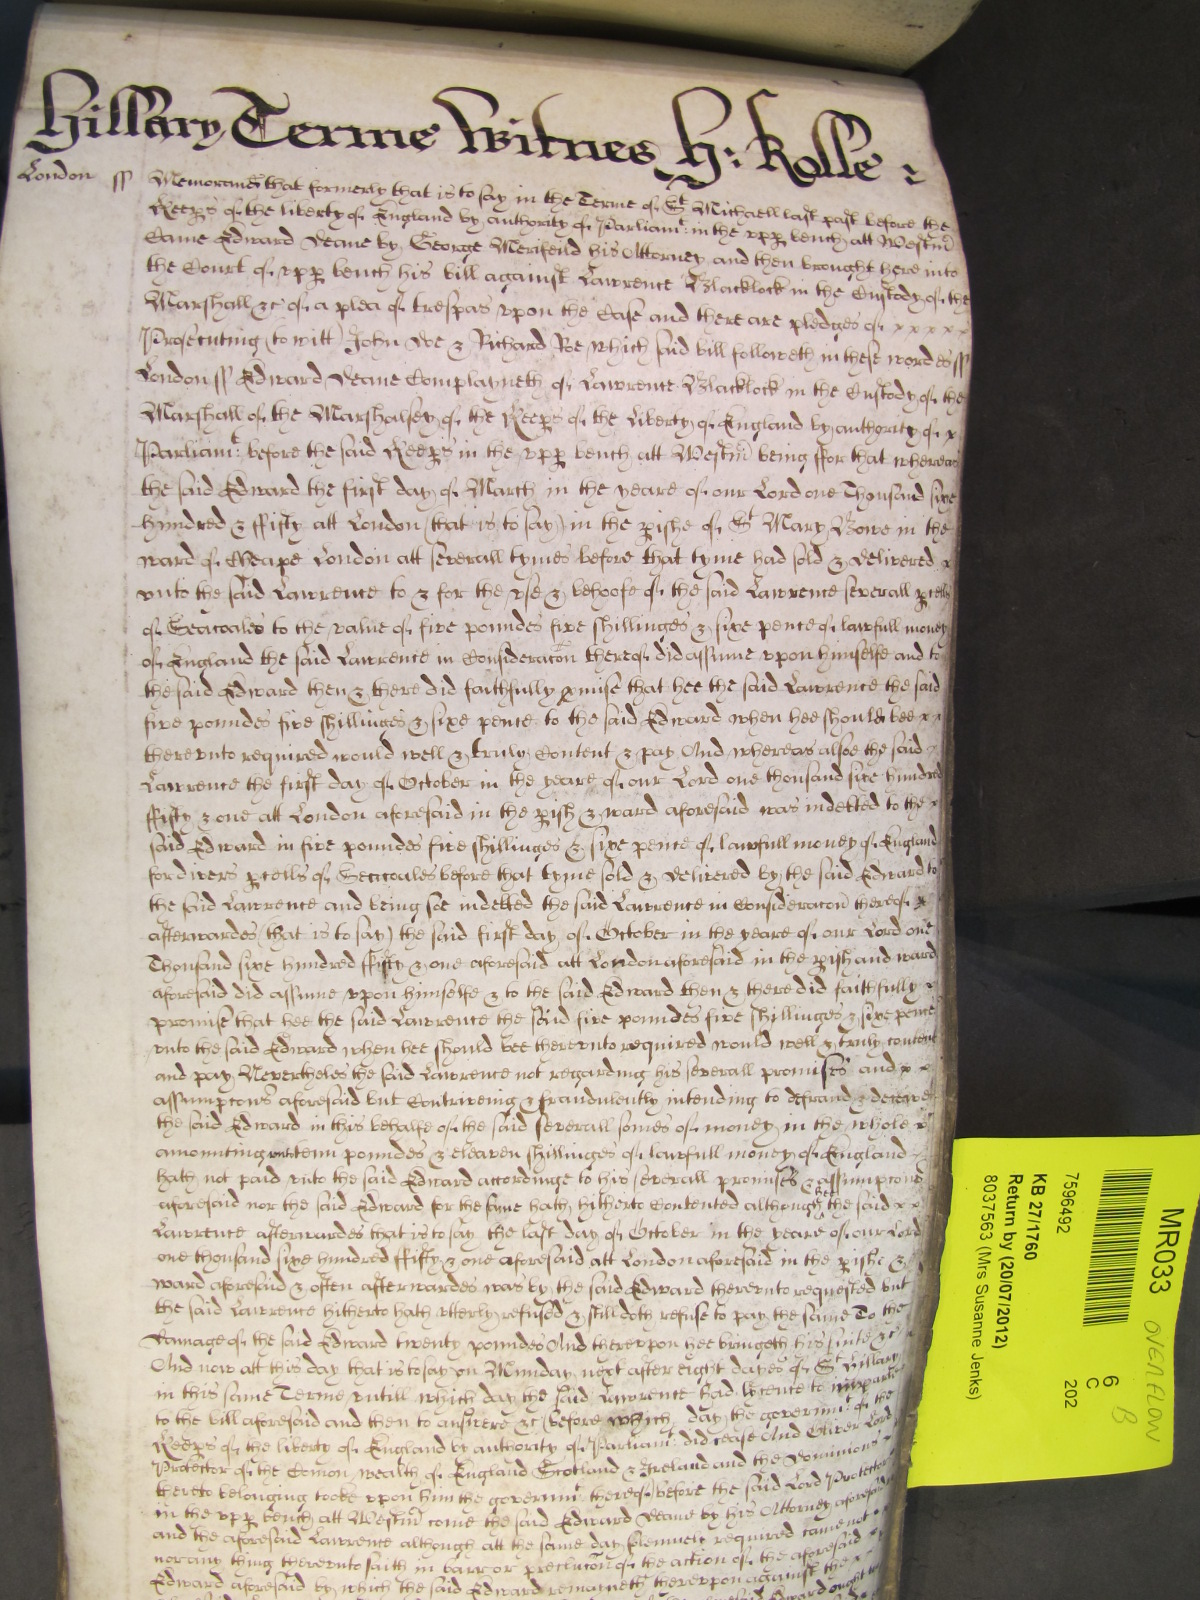 Hillary Terme Witnes H: Rolle :
London ss Memorand that formerly that is to say in the Terme of St Michaell last past before the
Keeps of the liberty of England by authority of Parliamt: in the vpp bench att Westm
Came Edward Deane by George Merifeild his Attorney and then brought here into
the Court of vpp bench his bill against Lawrence Blacklock in the Custody of the
Marshall &c of a plea of trespas vpon the Case and there are pledges of x x x x x
Prosecuting (to witt) John Doe & Richard Roe which said bill followeth in these wordes ss
London ss Edward Deane Complayneth of Lawrence Blacklock in the Custody of the
Marshall of the Marshalsey of the Keeps of the Liberty of England by authority of x
Parliamt: before the said Keeps in the vpp bench att Westm being ffor that whereas
the said Edward the first day of March in the yeare of our Lord one Thousand sixe
hundred & ffifty att London (that is to say) in the pishe of St Mary Bowe in the
ward of Cheape London att severall tymes before that tyme had sold & delivered x
vnto the said Lawrence to & for the vse & behoofe of the said Lawrence severall pcells
of Seacoales to the value of five poundes five shillinges & sixe pence of lawfull money
of England the said Lawrence in Consideracon thereof did assume vpon himselfe and to
the said Edward then & there did faithfully pmise that hee the said Lawrence the said
five poundes five shillinges & sixe pence to the said Edward when hee should bee x x
therevnto required would well & truly Content & pay And whereas alsoe the said x
Lawrence the first day of October in the yeare of our Lord one thousand sixe hundred
ffifty & one att London aforesaid in the pish & ward aforesaid was indebted to the x
said Edward in five poundes five shillinges & sixe pence of lawfull money of England
for divers pcells of Seacoales before that tyme sold & delivered by the said Edward to
the said Lawrence and being soe indebted the said Lawrence in Consideracon thereof x
afterwardes (that is to say) the said first day of October in the yeare of our Lord one
Thousand sixe hundred ffifty & one aforesaid att London aforesaid in the pish and ward
aforesaid did assume vpon himselfe & to the said Edward then & there did faithfully x
promise that hee the said Lawrence the said five poundes five shillinges & sixe pence
vnto the said Edward when hee should bee therevnto required would well & truly content
and pay Nevertheles the said Lawrence not regarding his severall promises and x x
assumpcons aforesaid but Contriveing & fraudulently intending to defraud & deceive
the said Edward in this behalfe of the said severall somes of money in the whole x
amounting vnto tenn poundes & eleaven shillinges of lawfull money of England
hath not paid vnto the said Edward accordinge to his severall promises & assumpcons
aforesaid nor the said Edward for the same hath hitherto Contented although hee the said x x
Lawrence afterwardes that is to say the last day of October in the yeare of our Lord
one thousand sixe hundred ffifty & one aforesaid att London aforesaid in the pishe &
ward aforesaid & often afterwardes was by the said Edward therevnto requested but
the said Lawrence hitherto hath vtterly refused & still doth refuse to pay the same To the
Damage of the said Edward twenty poundes And therevpon hee bringeth his suite &c
And now att this day that is to say on Munday next after eight dayes of St Hillary
in this same Terme vntill which day the said Lawrence had lycence to imparle
to the bill aforesaid and then to answere &c (before which day the governmt: of the
Keeps of the liberty of England by authority of Parliamt: did cease And Oliver Lord
Protector of the Comon wealth of England Scotland & Ireland and the Dominions
thereto belonging tooke vpon him the governmt thereof) before the said Lord Protector
in the vpp bench att Westm come the said Edward Deane by his Attorney aforesaid
and the aforesaid Lawrence although att the same day solemnely required came not
nor any thing therevnto saith in barr or preclucon of the action of the aforesaid
Edward aforesaid by which the said Edward remaineth therevpon against the
Edward ought
MR033
7596492
KB 27/1760
Return by (20/07/2012)
8037563 (Mrs Susanne Jenks)
6
C
202
OVERFLOW
B